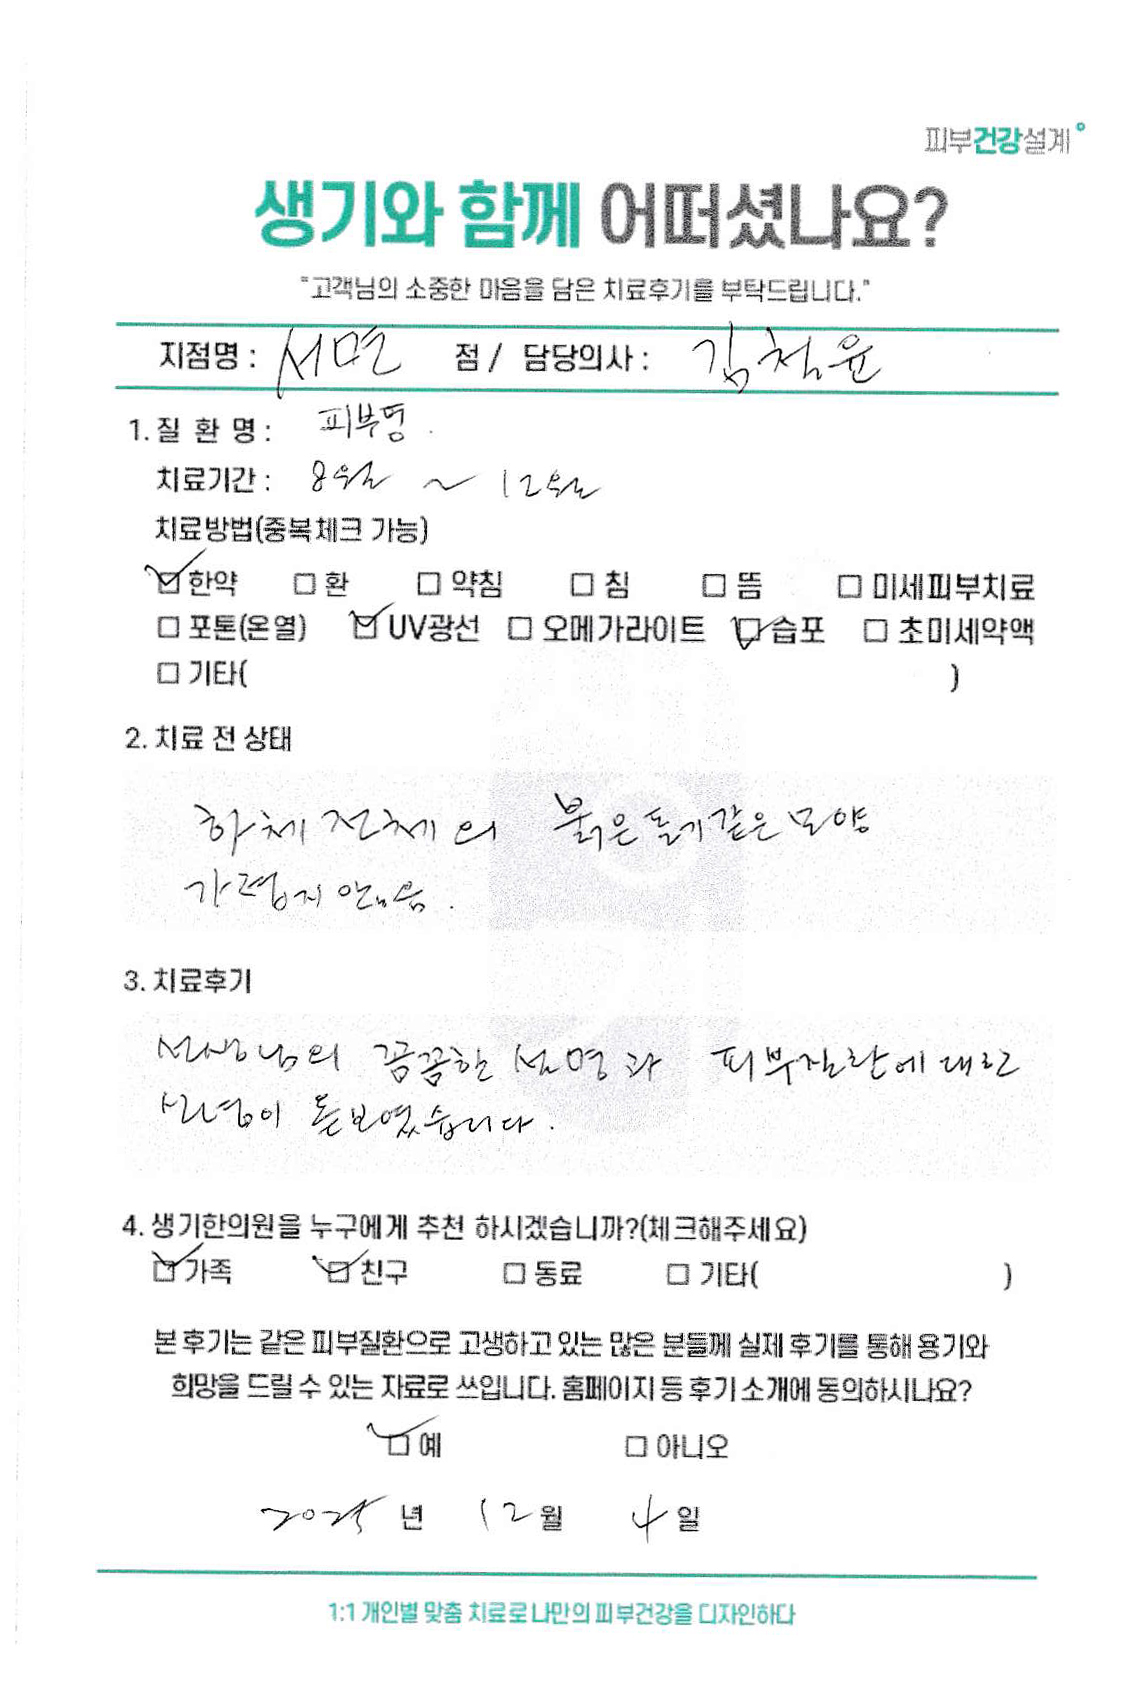 피부건강설계
생기와 함께 어떠셨나요?
"고객님의 소중한 마음을 담은 치료후기를 부탁드립니다."
지점명 : 서면 점 / 담당의사 : 김철윤
1. 질 환 명 : 피부병.
치료기간 : 8월 ~ 12월
치료방법(중복체크 가능)
☑ 한약 □ 환 □ 약침 □ 침 □ 뜸 □ 미세피부치료
□ 포톤(온열) ☑ UV광선 □ 오메가라이트 ☑ 습포 □ 초미세약액
□ 기타( )
2. 치료 전 상태
하체 전체의 붉은 돌기같은 모양
가렵지 않음.
3. 치료후기
선생님의 꼼꼼한 설명과 피부질환에 대한
신념이 돋보였습니다.
4. 생기한의원을 누구에게 추천 하시겠습니까?(체크해주세요)
☑ 가족 ☑ 친구 □ 동료 □ 기타( )
본 후기는 같은 피부질환으로 고생하고 있는 많은 분들께 실제 후기를 통해 용기와
희망을 드릴 수 있는 자료로 쓰입니다. 홈페이지 등 후기 소개에 동의하시나요?
☑ 예 □ 아니오
2025 년 12 월 4 일
1:1 개인별 맞춤 치료로 나만의 피부건강을 디자인하다